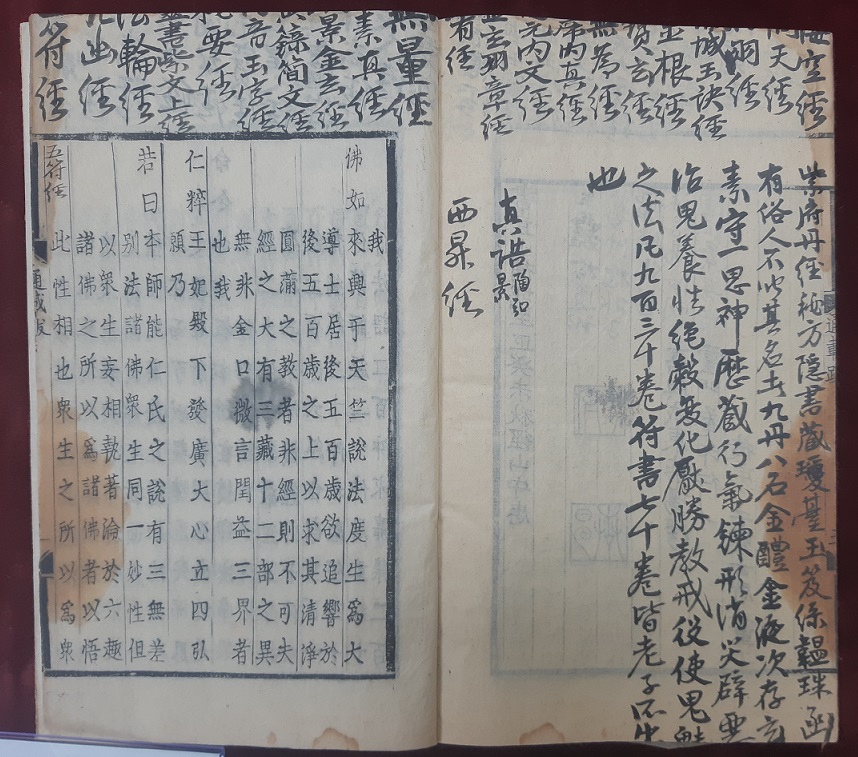 空經
天經
城玉訣經
金根經
寶玄經
無為經
內真經
元內文經
玉玄羽章經
有經
紫府丹經秘方隱書藏瓊臺玉笈絛韞珠函
有俗人不次其名者九丹八石金醴金液次存玄
素守一思神歷藏行氣鍊形消災辟惡
治鬼養性絕穀變化厭勝教戒役使鬼魅
之法凡九百三十卷符書七十卷皆老子所出
也
真誥陶弘景
西昇經
無量經
素真經
景金玄經
真籙簡文經
音玉字經
要經
靈書紫文上經
法輪經
九幽經
符經
五符經
我
佛如來興于天竺說法度生爲大
導士居後五百歲欲追響於
後五百歲之上以求其清淨
圓滿之教者非經則不可夫
經之大有三藏十二部之異
無非金口微言閏益三界者
也我
仁粹王妃殿下發廣大心立四弘
願乃
若曰本師能仁氏之說有三無差
別法諸佛衆生同一妙性但
以衆生妄相執著淪於六趣
諸佛之所以爲諸佛者以悟
此性相也衆生之所以爲衆